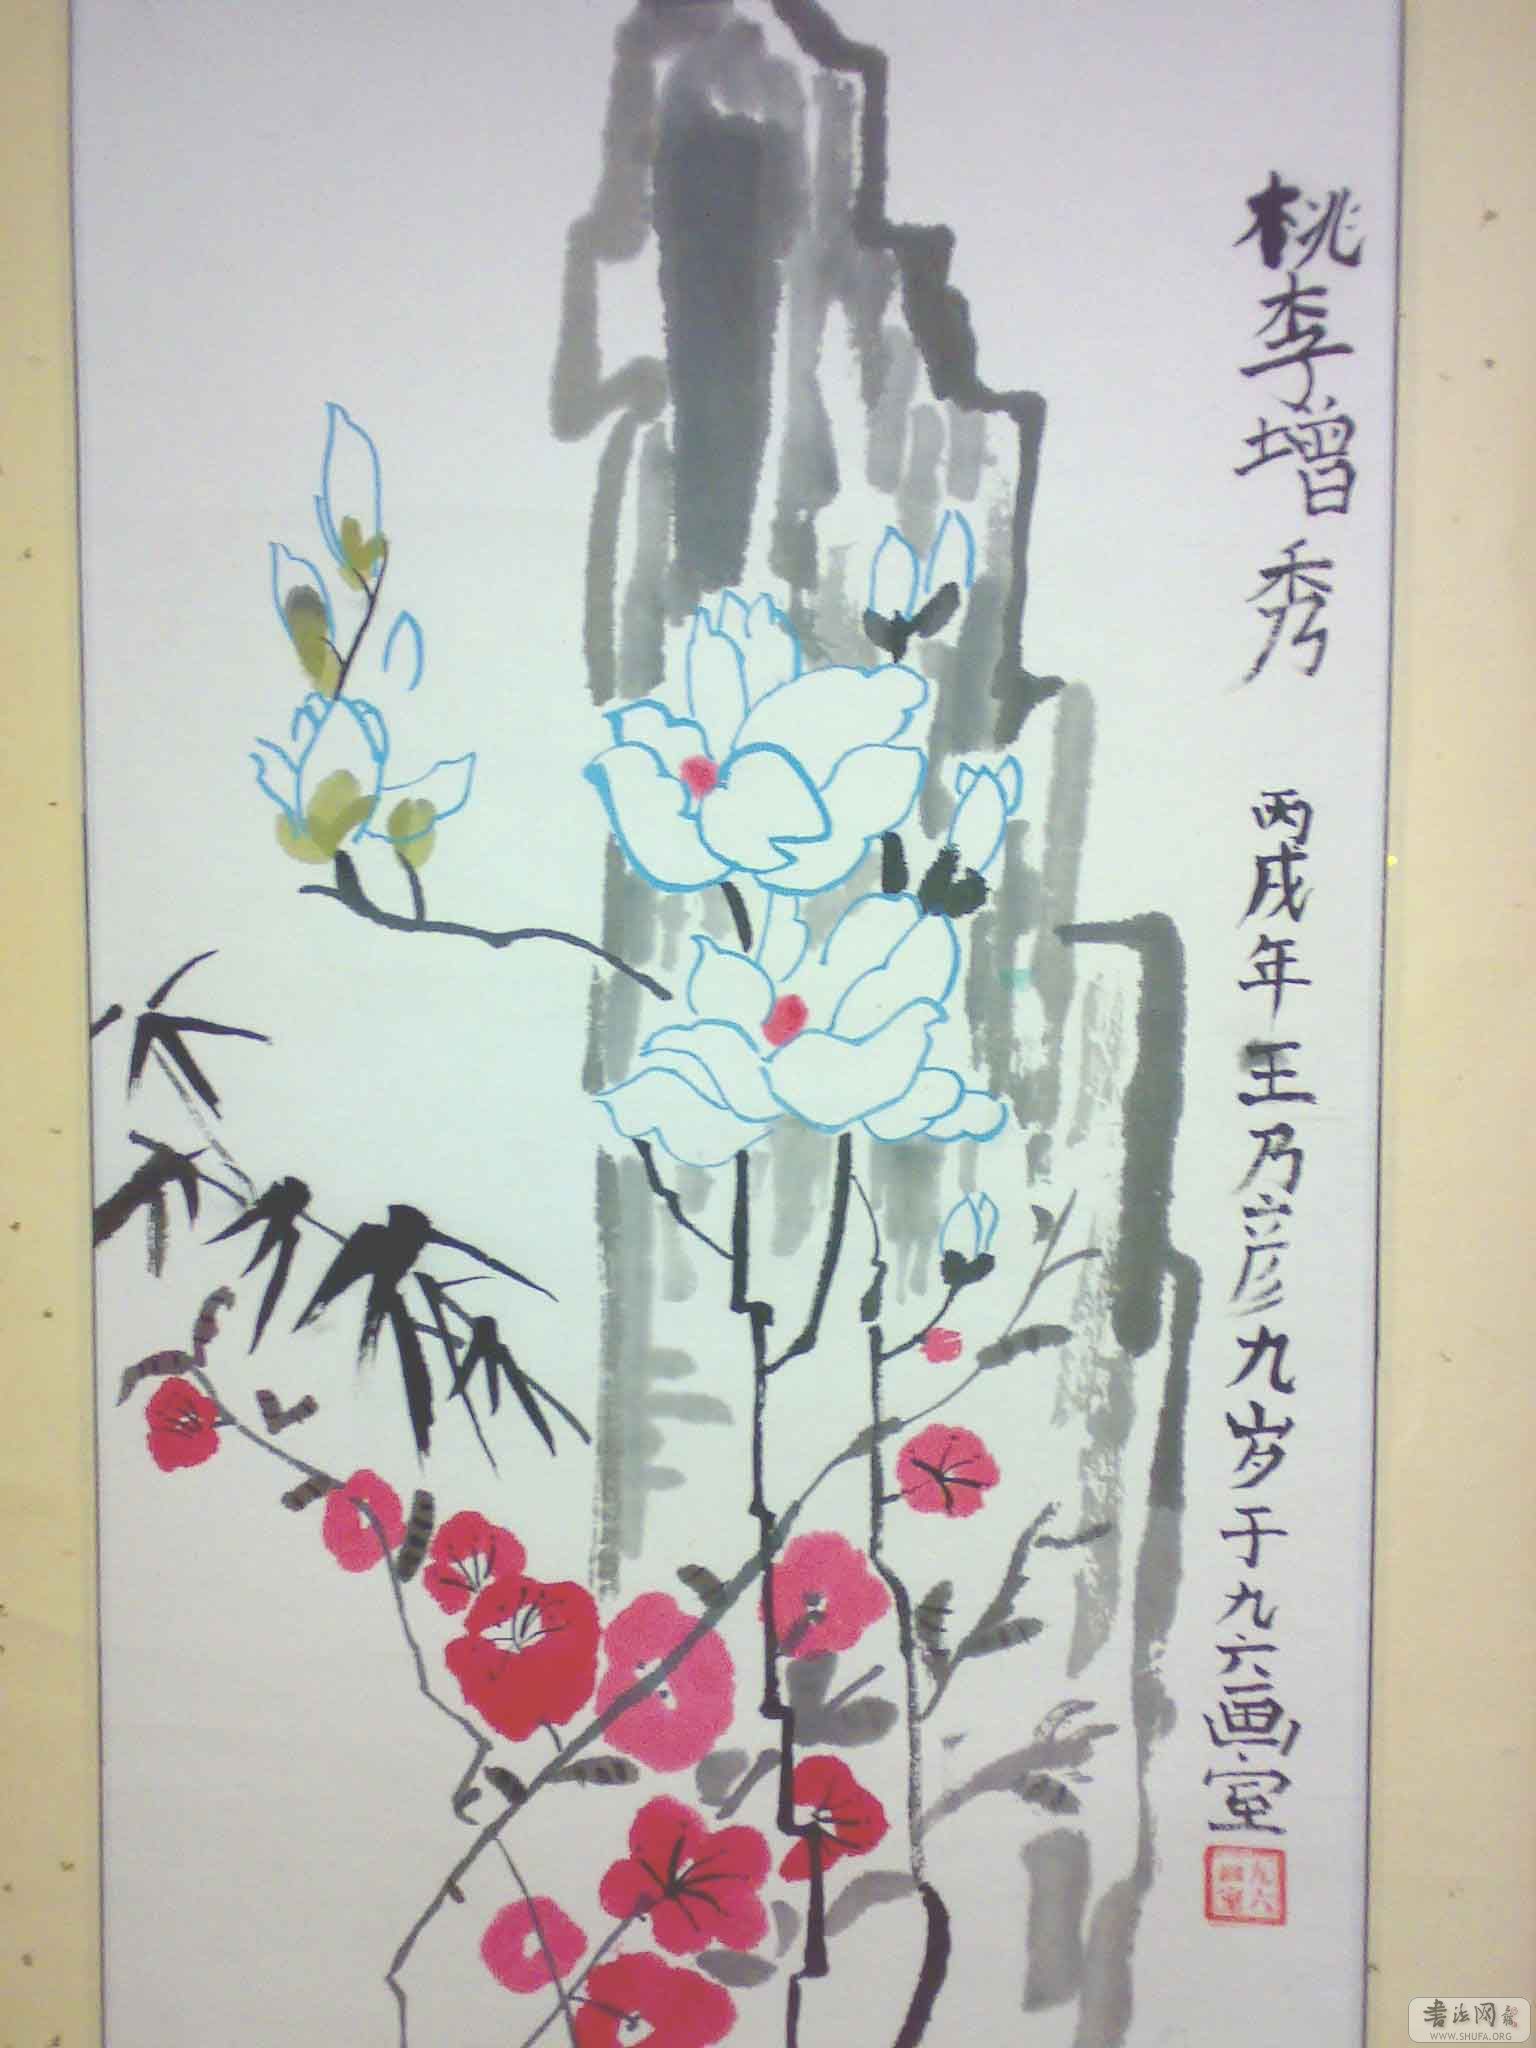 桃李增秀
丙戌年王乃彦九岁于九六画室
九六
画室
书法网
WWW.SHUFA.ORG